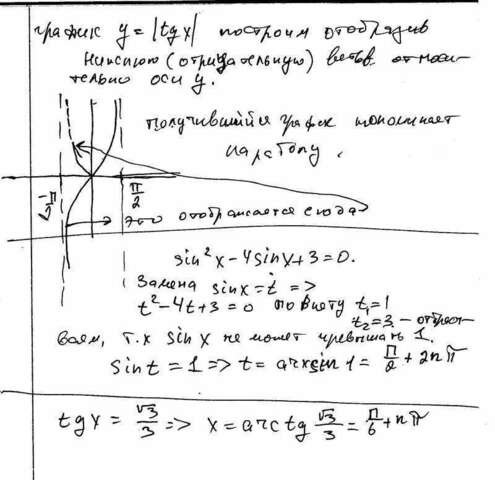 график y = |tg x| построим отобразив
нижнюю (отрицательную) ветвь относи-
тельно оси y.
получившийся график напоминает
параболу.
-π/2
π/2
это отображается сюда
sin²x - 4sinx + 3 = 0.
Замена sinx = t =>
t² - 4t + 3 = 0 по Виету t₁ = 1
t₂ = 3 - отбрасы-
ваем, т.к sin x не может превышать 1.
sin t = 1 => t = arcsin 1 = π/2 + 2nπ
tg x = √3/3 => x = arctg √3/3 = π/6 + nπ